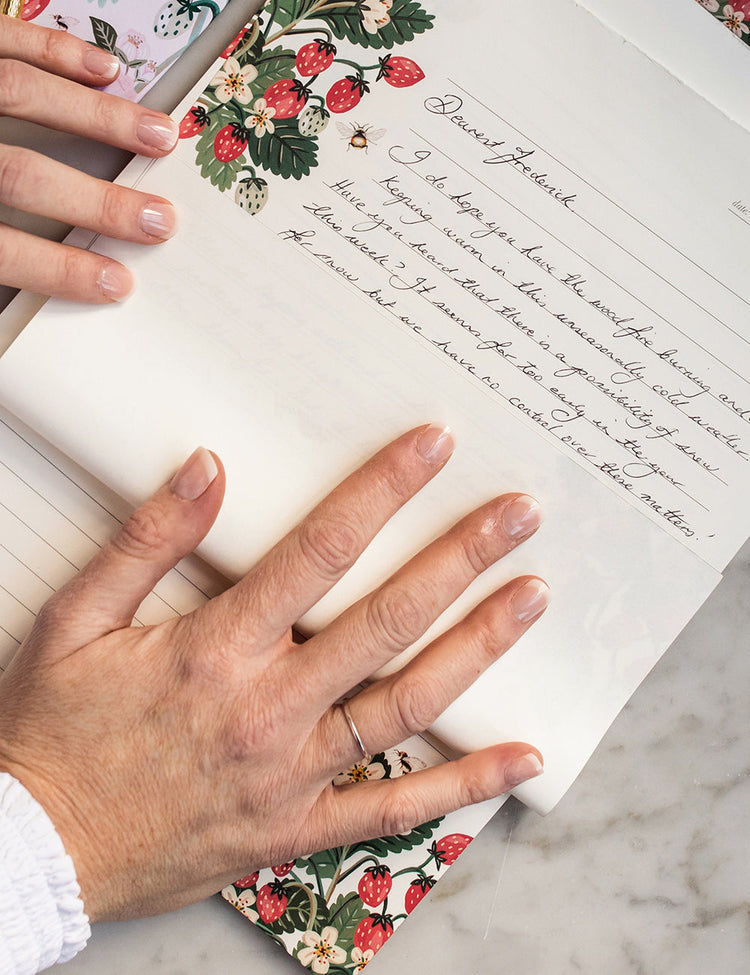 Dearest Frederick
I do hope you have the wood fire burning and
keeping warm in this unseasonally cold weather
Have you heard that there is a possibility of snow
this week? It seems far too early in the year
for snow but we have no control over these matters!
date